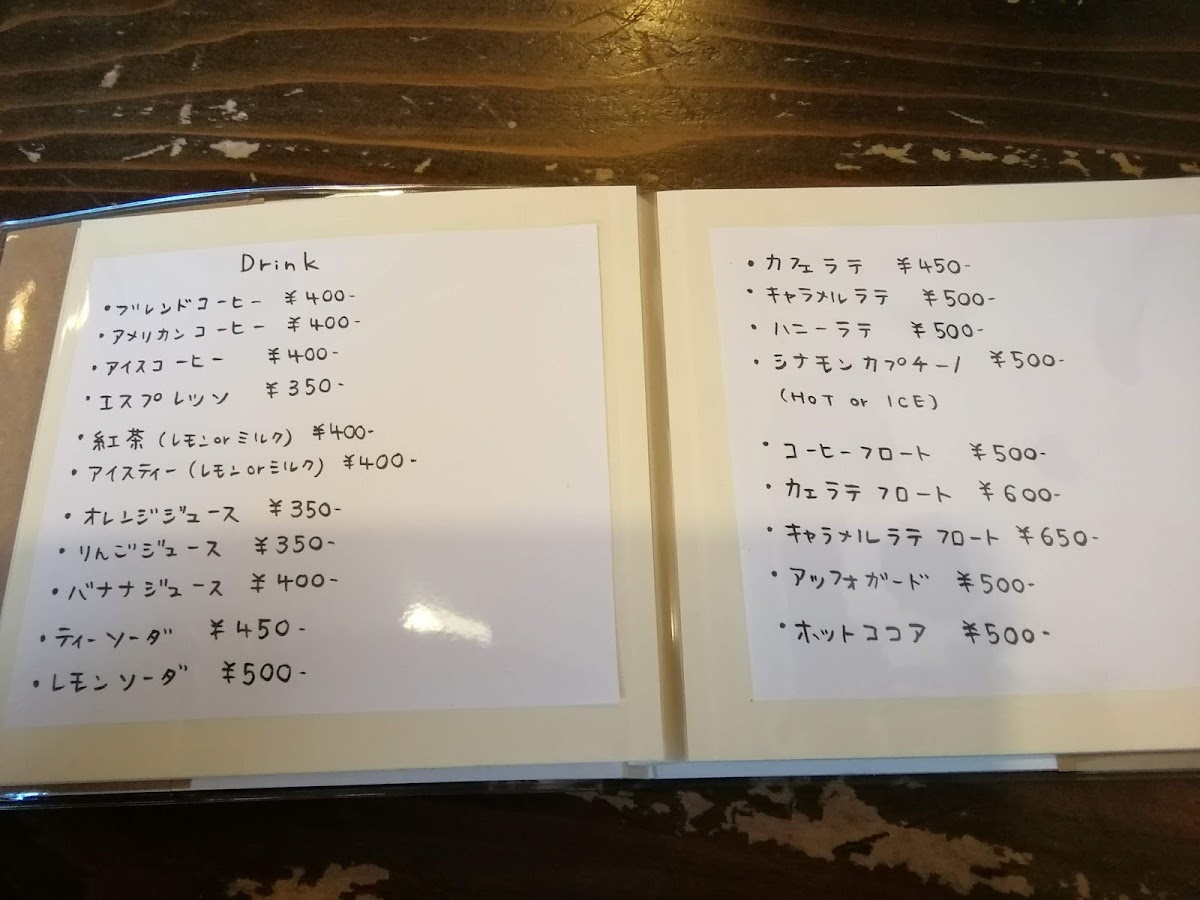 Drink
・ブレンドコーヒー ¥400-
・アメリカンコーヒー ¥400-
・アイスコーヒー ¥400-
・エスプレッソ ¥350-
・紅茶(レモンorミルク) ¥400-
・アイスティー(レモンorミルク) ¥400-
・オレンジジュース ¥350-
・りんごジュース ¥350-
・バナナジュース ¥400-
・ティーソーダ ¥450-
・レモンソーダ ¥500-
・カフェラテ ¥450-
・キャラメルラテ ¥500-
・ハニーラテ ¥500-
・シナモンカプチーノ ¥500-
(HOT or ICE)
・コーヒーフロート ¥500-
・カェラテフロート ¥600-
・キャラメルラテフロート ¥650-
・アッフォガード ¥500-
・ホットココア ¥500-